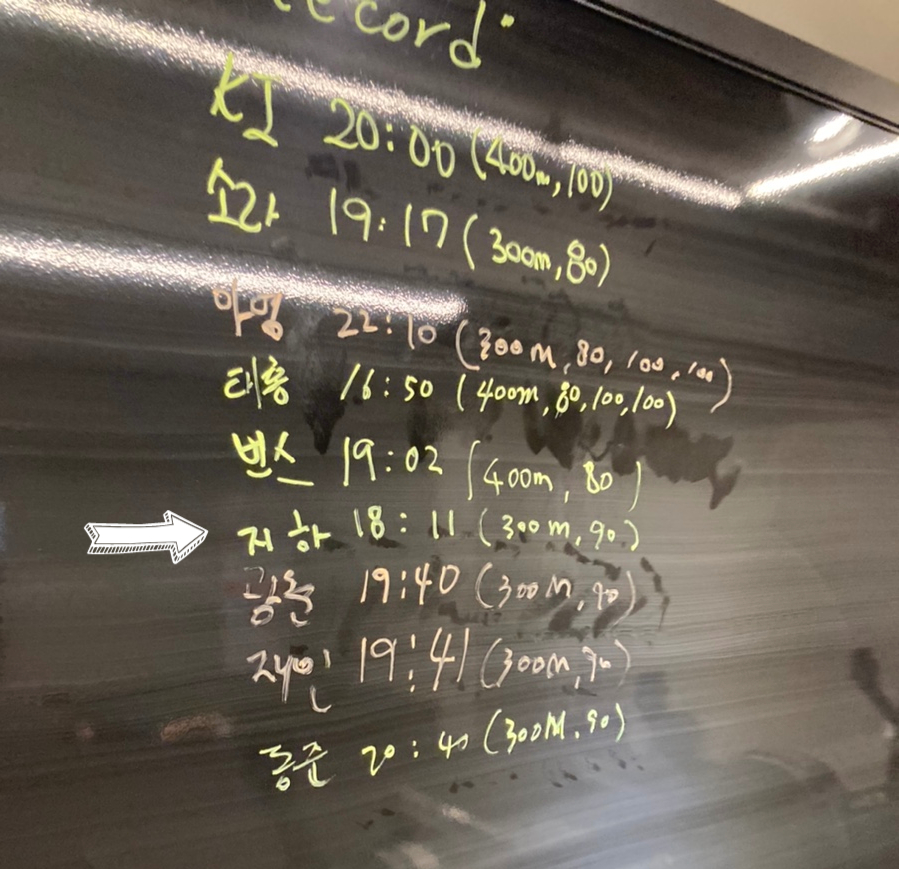 ecord"
KJ 20:00 (400m, 100)
소라 19:17 (300m, 80)
아영 22:10 (300m, 80, 100, 100)
태홍 16:50 (400m, 80, 100, 100)
벤스 19:02 (400m, 80)
지하 18:11 (300m, 90)
19:40 (300m, 90)
재인 19:41 (300m, 90)
동준 20:40 (300M, 90)